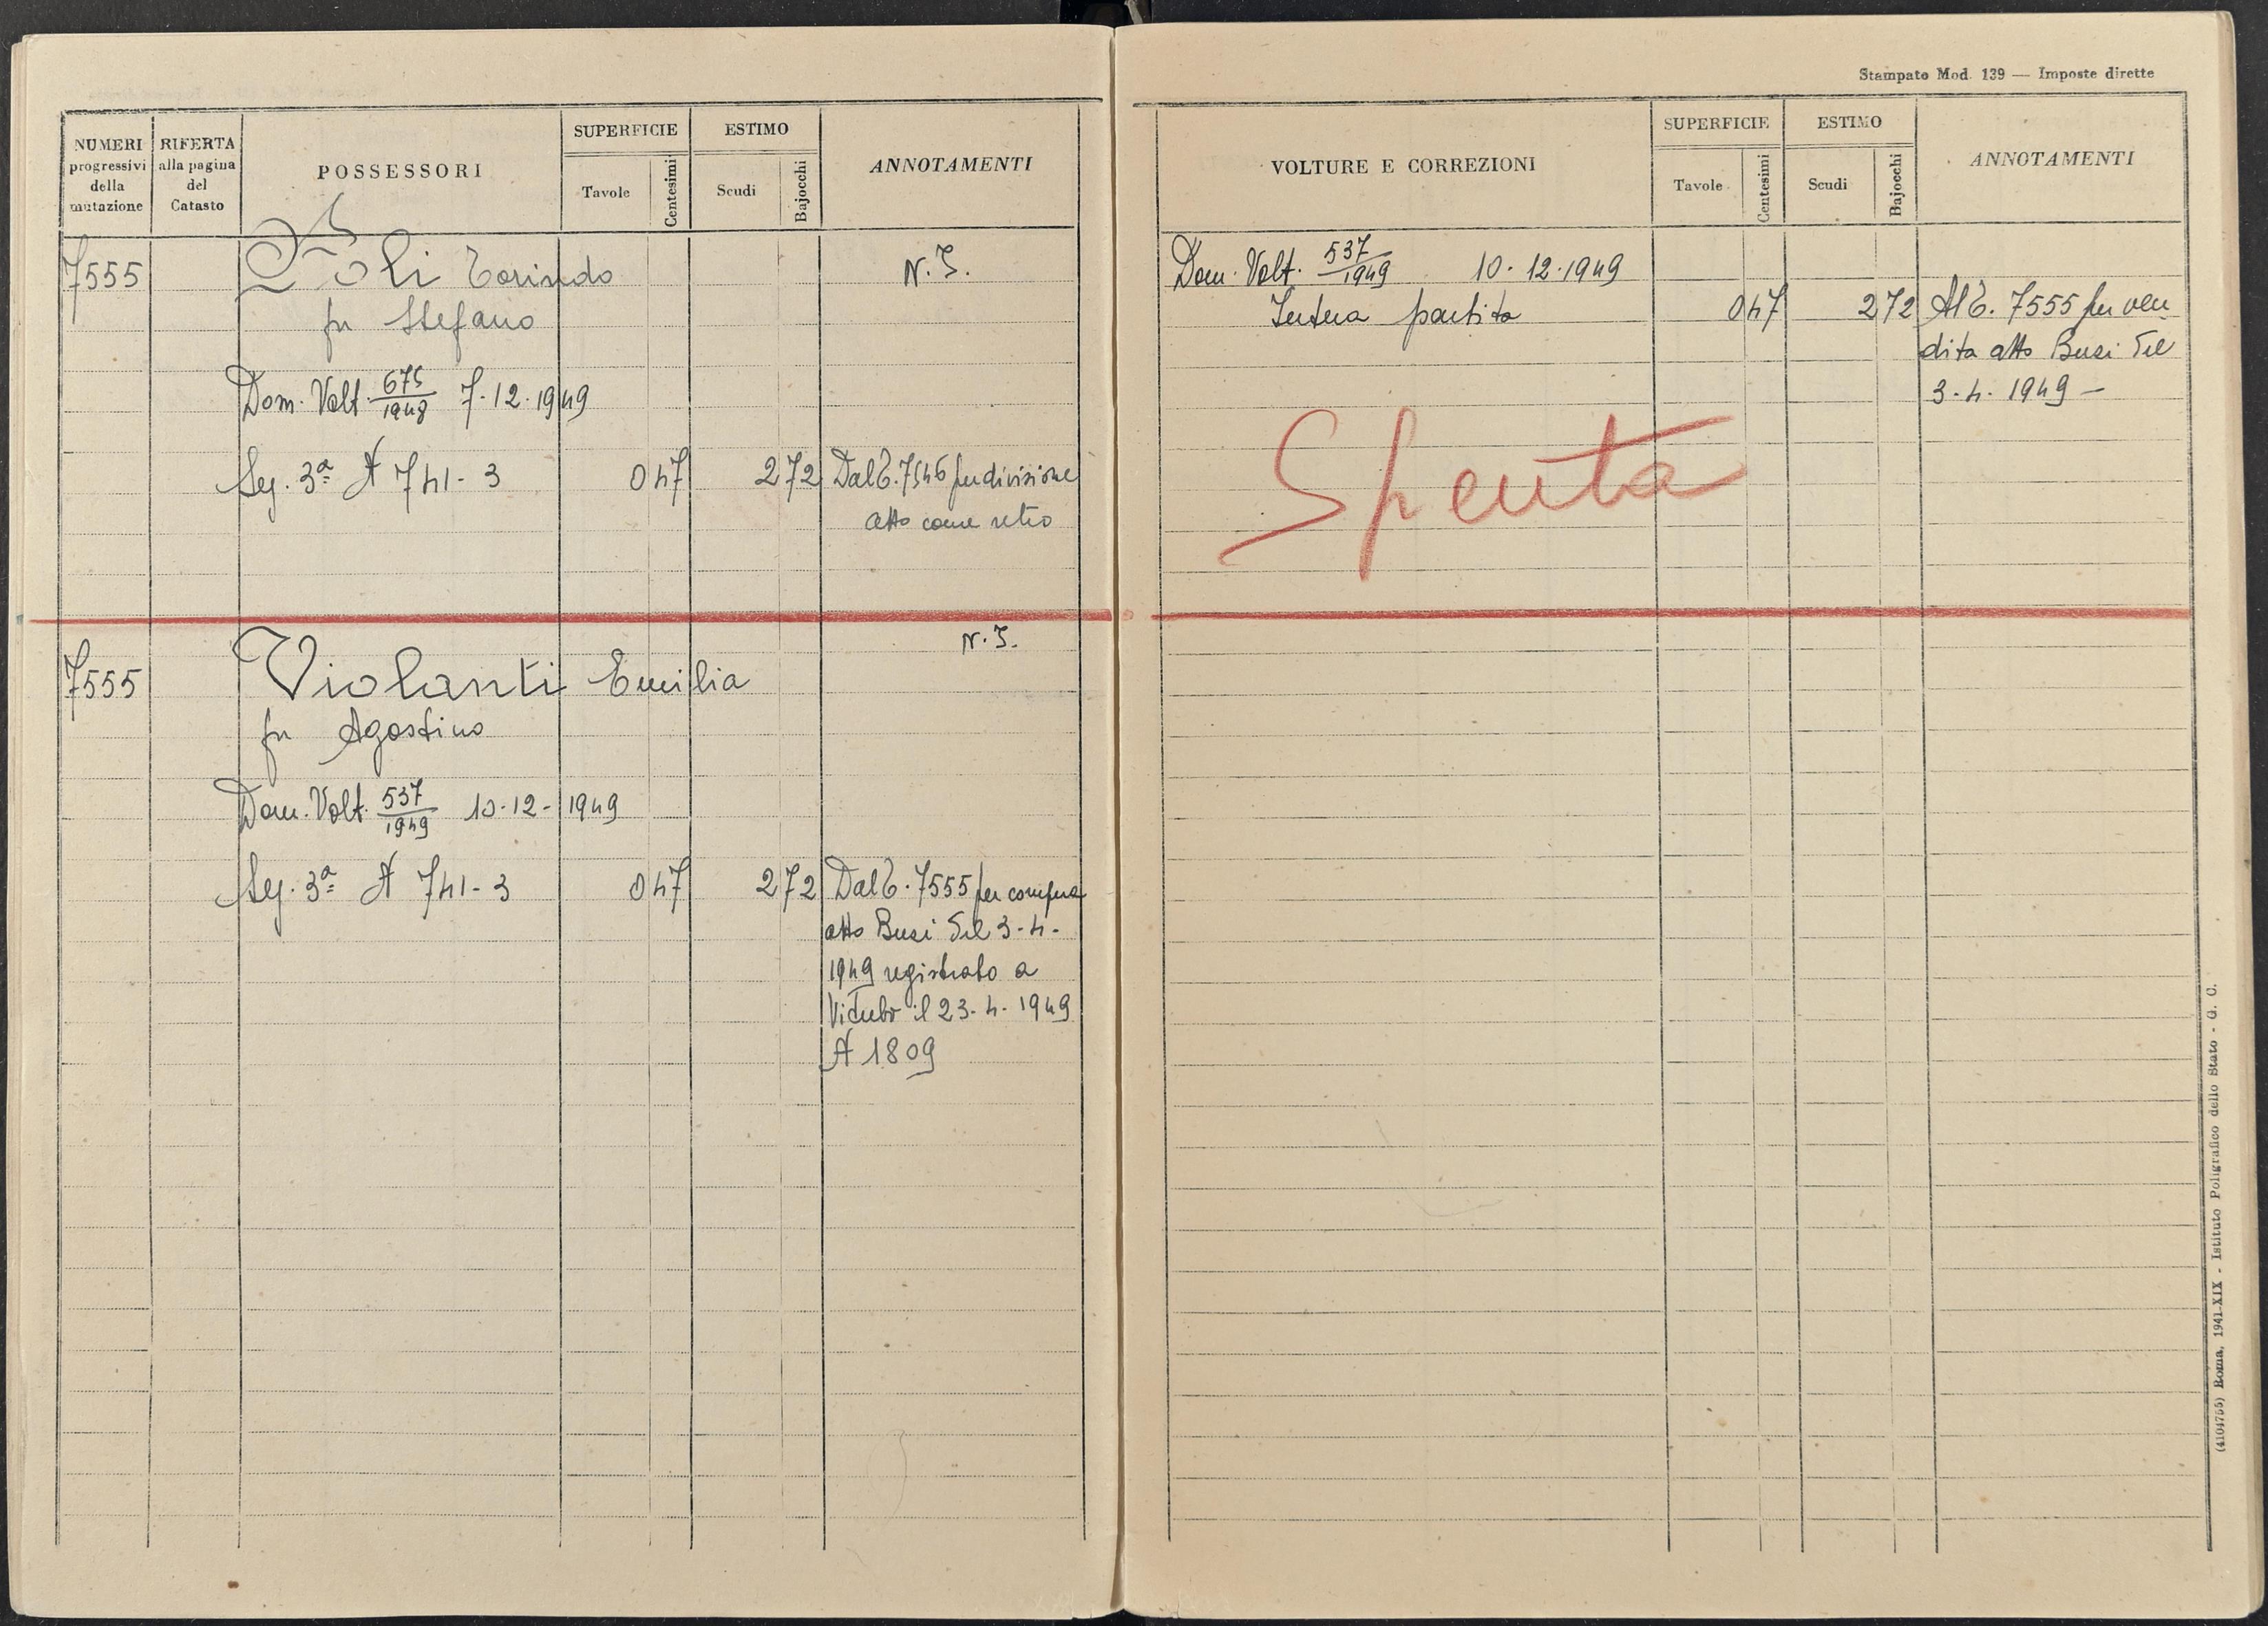 NUMERI
progressivi
della
mutazione
RIFERTA
alla pagina
del
Catasto
POSSESSORI
SUPERFICIE
Tavole
Centesimi
ESTIMO
Scudi
Bajocchi
ANNOTAMENTI
7555
Poli Torindo
N. I.
fu Stefano
Dom. Volt. 675/1948 7-12-1949
Sez. 3ª N 741-3
0 47
2 72
Dal C. 7546 per divisione
atto come retro
7555
Violanti Emilia
N. I.
fu Agostino
Dom. Volt. 537/1949 10-12-1949
Sez. 3ª N 741-3
0 47
2 72
Dal C. 7555 per compra
atto Busi del 3-4-
1949 registrato a
Viterbo il 23-4-1949
N 1809
Stampato Mod. 139 — Imposte dirette
VOLTURE E CORREZIONI
SUPERFICIE
Tavole
Centesimi
ESTIMO
Scudi
Bajocchi
ANNOTAMENTI
Dom. Volt. 537/1949 10-12-1949
Intera partita
0 47
2 72
Al C. 7555 per ven
dita atto Busi del
3-4-1949 —
Spenta
(4104755) Roma, 1941-XIX - Istituto Poligrafico dello Stato - G. C.